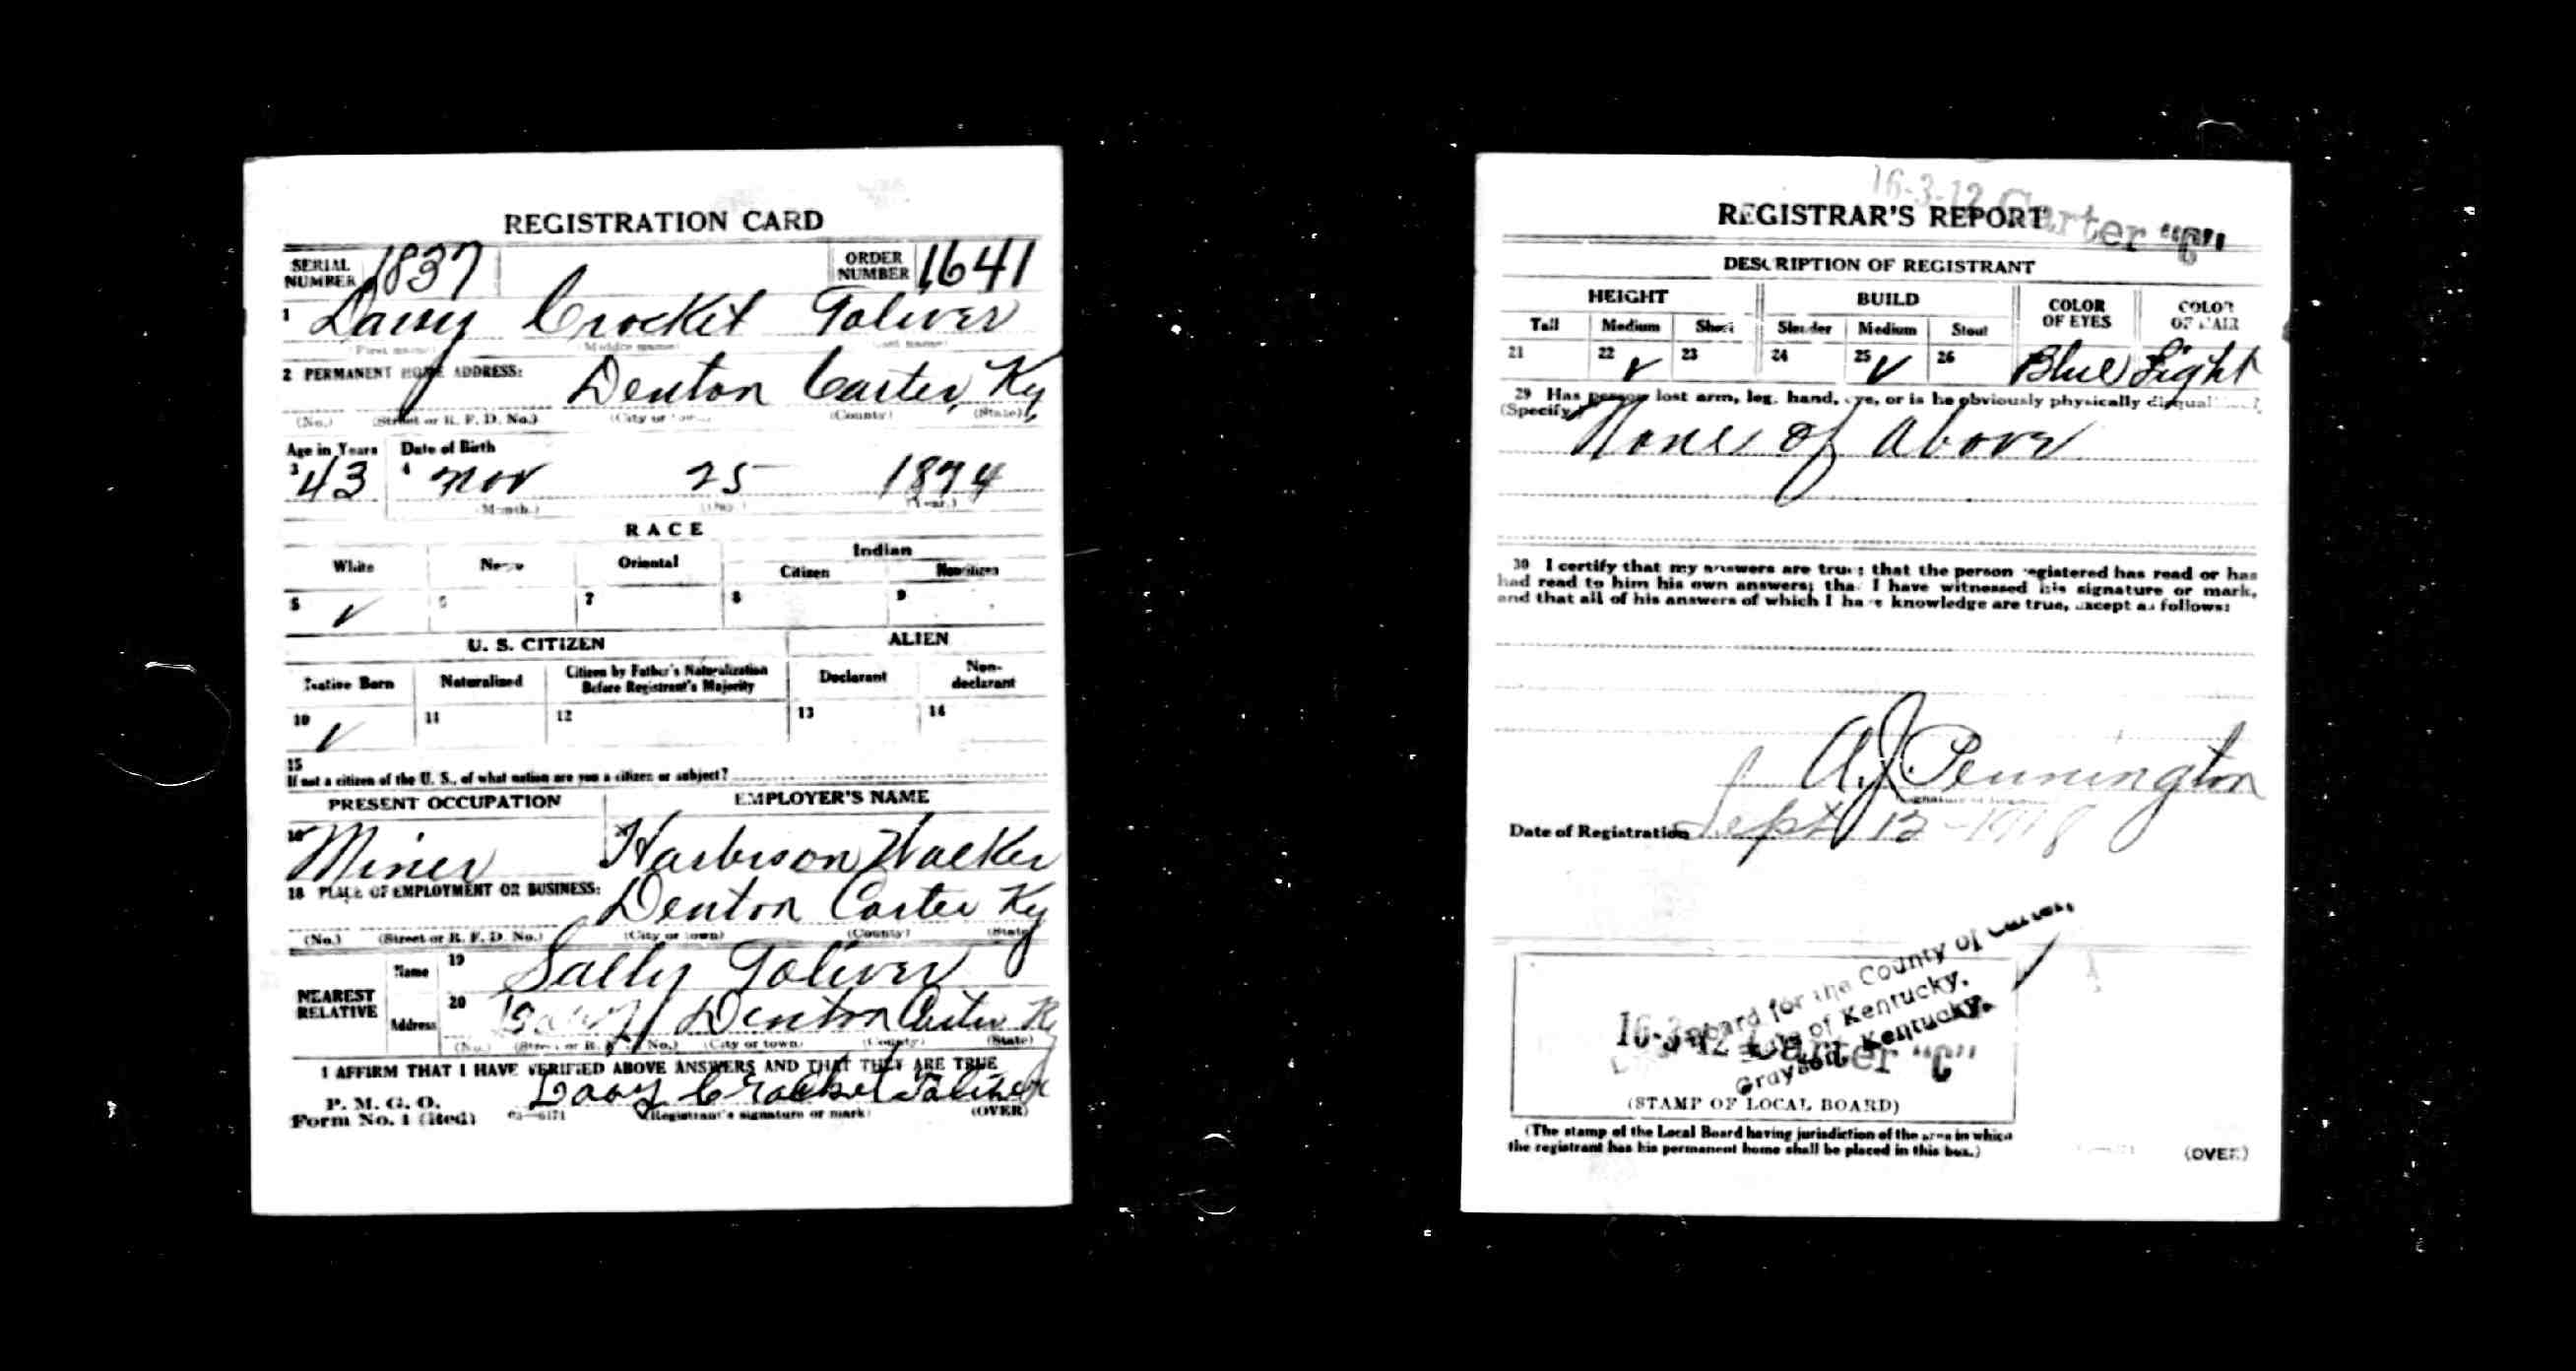 REGISTRATION CARD
SERIAL NUMBER 1837 ORDER NUMBER 1641
1 Davy Crocket Toliver
(First name) (Middle name) (Last name)
2 PERMANENT HOME ADDRESS: Denton Carter, Ky
(No.) (Street or R. F. D. No.) (City or town) (County) (State)
Age in Years Date of Birth
3 43 4 Nov 25 1874
(Month.) (Day.) (Year.)
RACE
White Negro Oriental Indian
Citizen Noncitizen
5 ✓ 6 7 8 9
U. S. CITIZEN ALIEN
Native Born Naturalized Citizen by Father's Naturalization Before Registrant's Majority Declarant Non-declarant
10 ✓ 11 12 13 14
15
If not a citizen of the U. S., of what nation are you a citizen or subject?
PRESENT OCCUPATION EMPLOYER'S NAME
16 Miner Harbison Walker
18 PLACE OF EMPLOYMENT OR BUSINESS: Denton Carter Ky
(No.) (Street or R. F. D. No.) (City or town) (County) (State)
NEAREST RELATIVE Name 19 Sally Toliver
Address 20 Denton Carter Ky
(No.) (Street or R. F. D. No.) (City or town) (County) (State)
I AFFIRM THAT I HAVE VERIFIED ABOVE ANSWERS AND THAT THEY ARE TRUE
P. M. G. O.
Form No. 1 (Red) 03—6171 Davy Crocket Toliver (Registrant's signature or mark) (OVER)
16-3-12 Carter "C"
REGISTRAR'S REPORT
DESCRIPTION OF REGISTRANT
HEIGHT BUILD COLOR OF EYES COLOR OF HAIR
Tall Medium Short Slender Medium Stout
21 22 ✓ 23 24 25 ✓ 26 Blue Light
29 Has person lost arm, leg, hand, eye, or is he obviously physically disqualified?
(Specify.) None of above
30 I certify that my answers are true; that the person registered has read or has
had read to him his own answers; that I have witnessed his signature or mark,
and that all of his answers of which I have knowledge are true, except as follows:
A. J. Pennington
Date of Registration Sept 12-1918
Local Board for the County of Carter,
State of Kentucky.
Grayson, Kentucky.
16-3-12 Carter "C"
(STAMP OF LOCAL BOARD)
(The stamp of the Local Board having jurisdiction of the area in which
the registrant has his permanent home shall be placed in this box.)
(OVER)